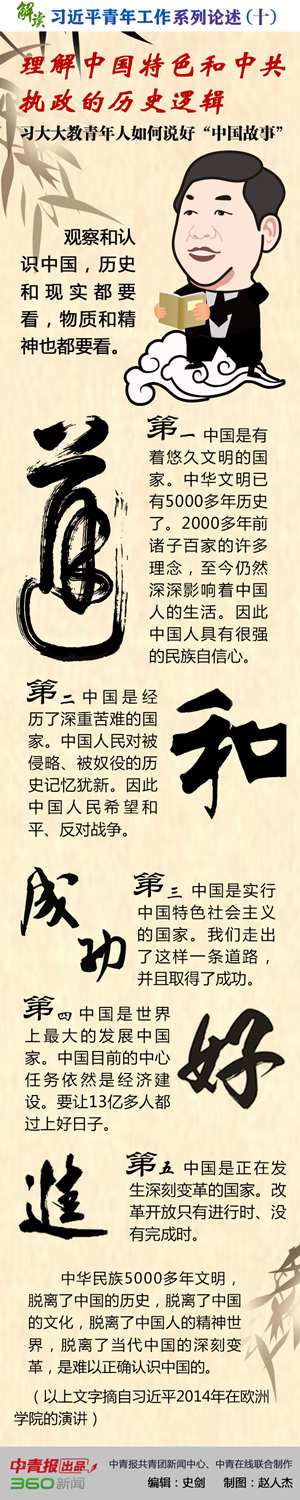 解读 习近平青年工作系列论述(十)
理解中国特色和中共
执政的历史逻辑
习大大教青年人如何说好“中国故事”
观察和认
识中国，历史
和现实都要
看，物质和精
神也都要看。
道
第一 中国是有
着悠久文明的国
家。中华文明已
有5000多年历史
了。2000多年前
诸子百家的许多
理念，至今仍然
深深影响着中国
人的生活。因此
中国人具有很强
的民族自信心。
第二 中国是经
历了深重苦难的国
家。中国人民对被
侵略、被奴役的历
史记忆犹新。因此
中国人民希望和
平、反对战争。
和
成功
第三 中国是实行
中国特色社会主义
的国家。我们走出
了这样一条道路，
并且取得了成功。
第四 中国是世界
上最大的发展中国
家。中国目前的中心
任务依然是经济建
设。要让13亿多人都
过上好日子。
好
進
第五 中国是正在发
生深刻变革的国家。改
革开放只有进行时、没
有完成时。
中华民族5000多年文明，
脱离了中国的历史，脱离了中国
的文化，脱离了中国人的精神世
界，脱离了当代中国的深刻变
革，是难以正确认识中国的。
（以上文字摘自习近平2014年在欧洲
学院的演讲）
中青报出品 中青报共青团新闻中心、中青在线联合制作
360新闻 编辑：史剑 制图：赵人杰